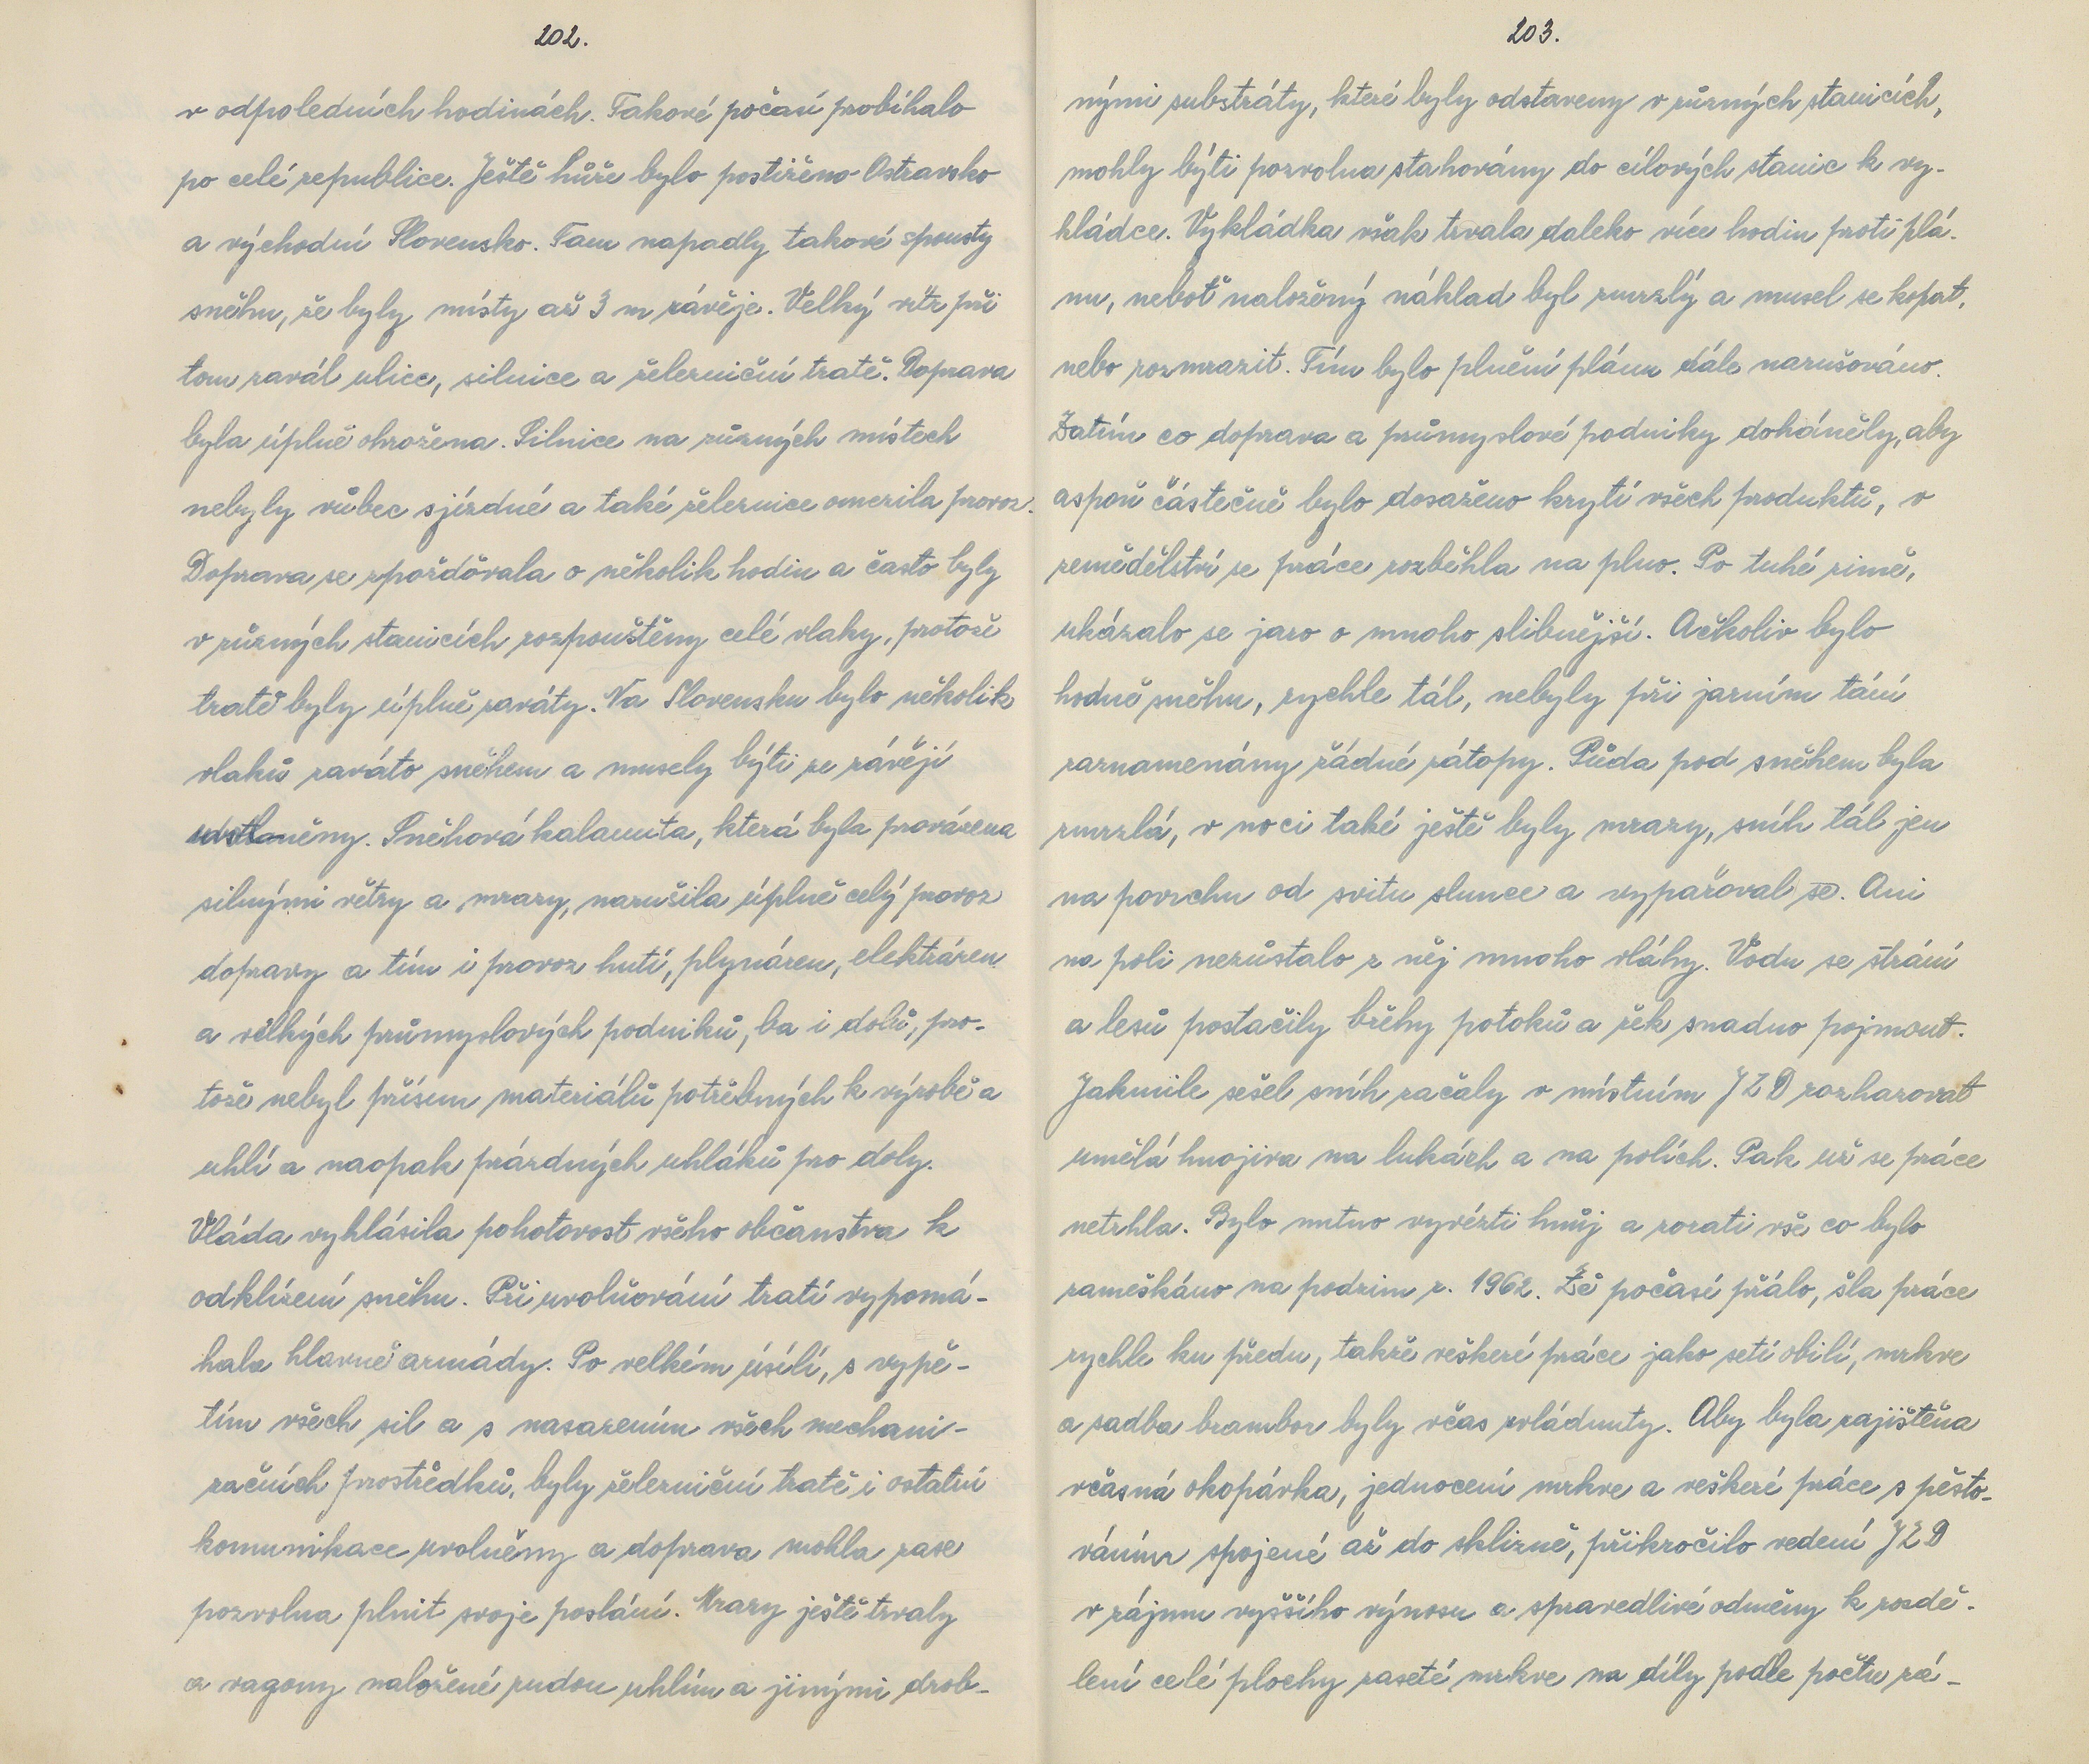 202.
v odpoledních hodinách. Takové počasí probíhalo
po celé republice. Ještě hůře bylo postiženo Ostravsko
a východní Slovensko. Tam napadly takové spousty
sněhu, že byly místy až 3 m závěje. Velký vítr při
tom zavál ulice, silnice a železniční tratě. Doprava
byla úplně ohrožena. Silnice na různých místech
nebyly vůbec sjízdné a také železnice omezila provoz.
Doprava se zpožďovala o několik hodin a často byly
v různých stanicích rozpouštěny celé vlaky, protože
tratě byly úplně zaváty. Na Slovensku bylo několik
vlaků zaváto sněhem a musely býti ze závějí
odstraněny. Sněhová kalamita, která byla provázena
silnými větry a mrazy, narušila úplně celý provoz
dopravy a tím i provoz hutí, plynáren, elektráren
a velkých průmyslových podniků, ba i dolů, pro-
tože nebyl přísun materiálů potřebných k výrobě a
uhlí a naopak prázdných uhláků pro doly.
Vláda vyhlásila pohotovost všeho občanstva k
odklízení sněhu. Při uvolňování tratí vypomá-
hala hlavně armády. Po velkém úsilí, s vypě-
tím všech sil a s nasazením všech mechani-
začních prostředků, byly železniční tratě i ostatní
komunikace uvolněny a doprava mohla zase
pozvolna plnit svoje poslání. Mrazy ještě trvaly
a vagony naložené rudou uhlím a jinými drob-
203.
nými substráty, které byly odstaveny v různých stanicích,
mohly býti pozvolna stahovány do cílových stanic k vy-
kládce. Vykládka však trvala daleko více hodin proti plá-
nu, neboť naložený náklad byl zmrzlý a musel se kopat,
nebo rozmrazit. Tím bylo plnění plánu dále narušováno.
Zatím co doprava a průmyslové podniky doháněly, aby
aspoň částečně bylo dosaženo krytí všech produktů, v
zemědělství se práce rozběhla na plno. Po tuhé zimě,
ukázalo se jaro o mnoho slibnější. Ačkoliv bylo
hodně sněhu, rychle tál, nebyly při jarním tání
zaznamenány řádné zátopy. Půda pod sněhem byla
zmrzlá, v noci také ještě byly mrazy, sníh tál jen
na povrchu od svitu slunce a vypařoval se. Ani
na poli nezůstalo z něj mnoho vláhy. Vodu se strání
a lesů postačily břehy potoků a řek snadno pojmout.
Jakmile sešel sníh začaly v místním JZD rozhazovat
umělá hnojiva na lukách a na polích. Pak už se práce
netrhla. Bylo nutno vyvézti hnůj a zorati vše co bylo
zameškáno na podzim r. 1962. Že počasí přálo, šla práce
rychle ku předu, takže veškeré práce jako setí obilí, mrkve
a sadba brambor byly včas zvládnuty. Aby byla zajištěna
včasná okopávka, jednocení mrkve a veškeré práce s pěsto-
váním spojené až do sklizně, přikročilo vedení JZD
v zájmu vyššího výnosu a spravedlivé odměny k rozdě-
lení celé plochy zaseté mrkve na díly podle počtu zá-